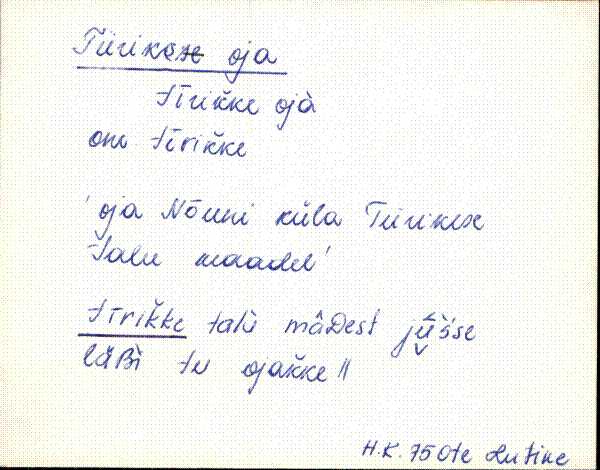 Tiirikese oja
tīrikke ojà
om tīrikke
'oja Nõuni küla Tiirikese
talu maadel'
tīrikke talù mâDest jṷ̄šse
läBì tu ojakke ||
H.K. 75 Ote Lutike